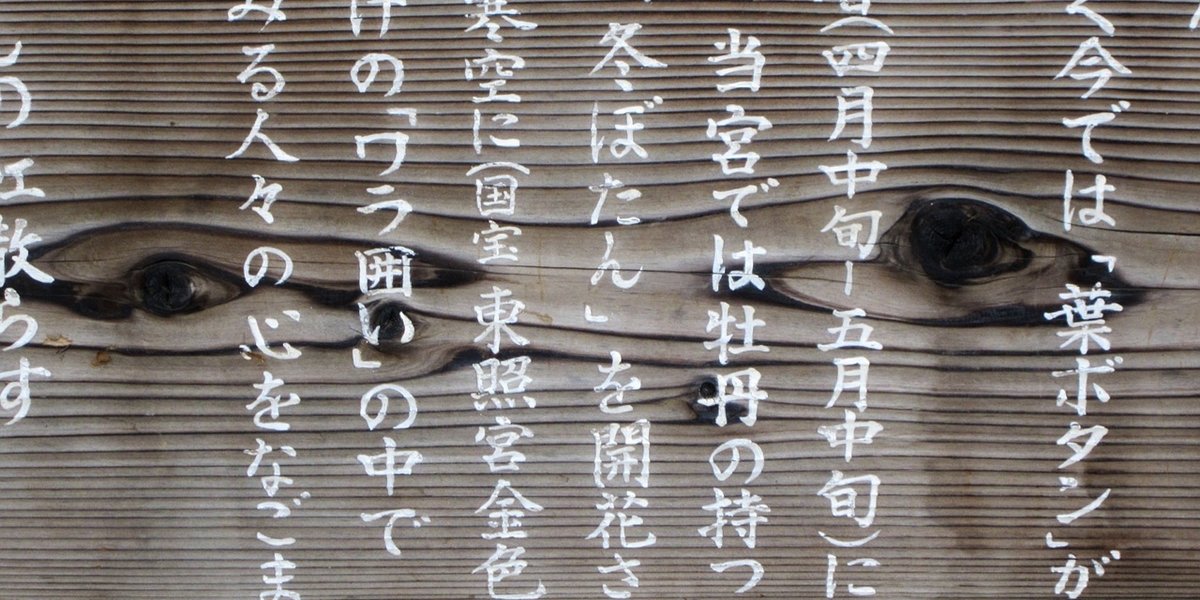 く今では「葉ボタン」が
(四月中旬ー五月中旬)に
当宮では牡丹の持つ
冬ぼたん」を開花さ
寒空に(国宝 東照宮金色
の「ワラ囲い」の中で
みる人々の心をなごま
の紅散らす